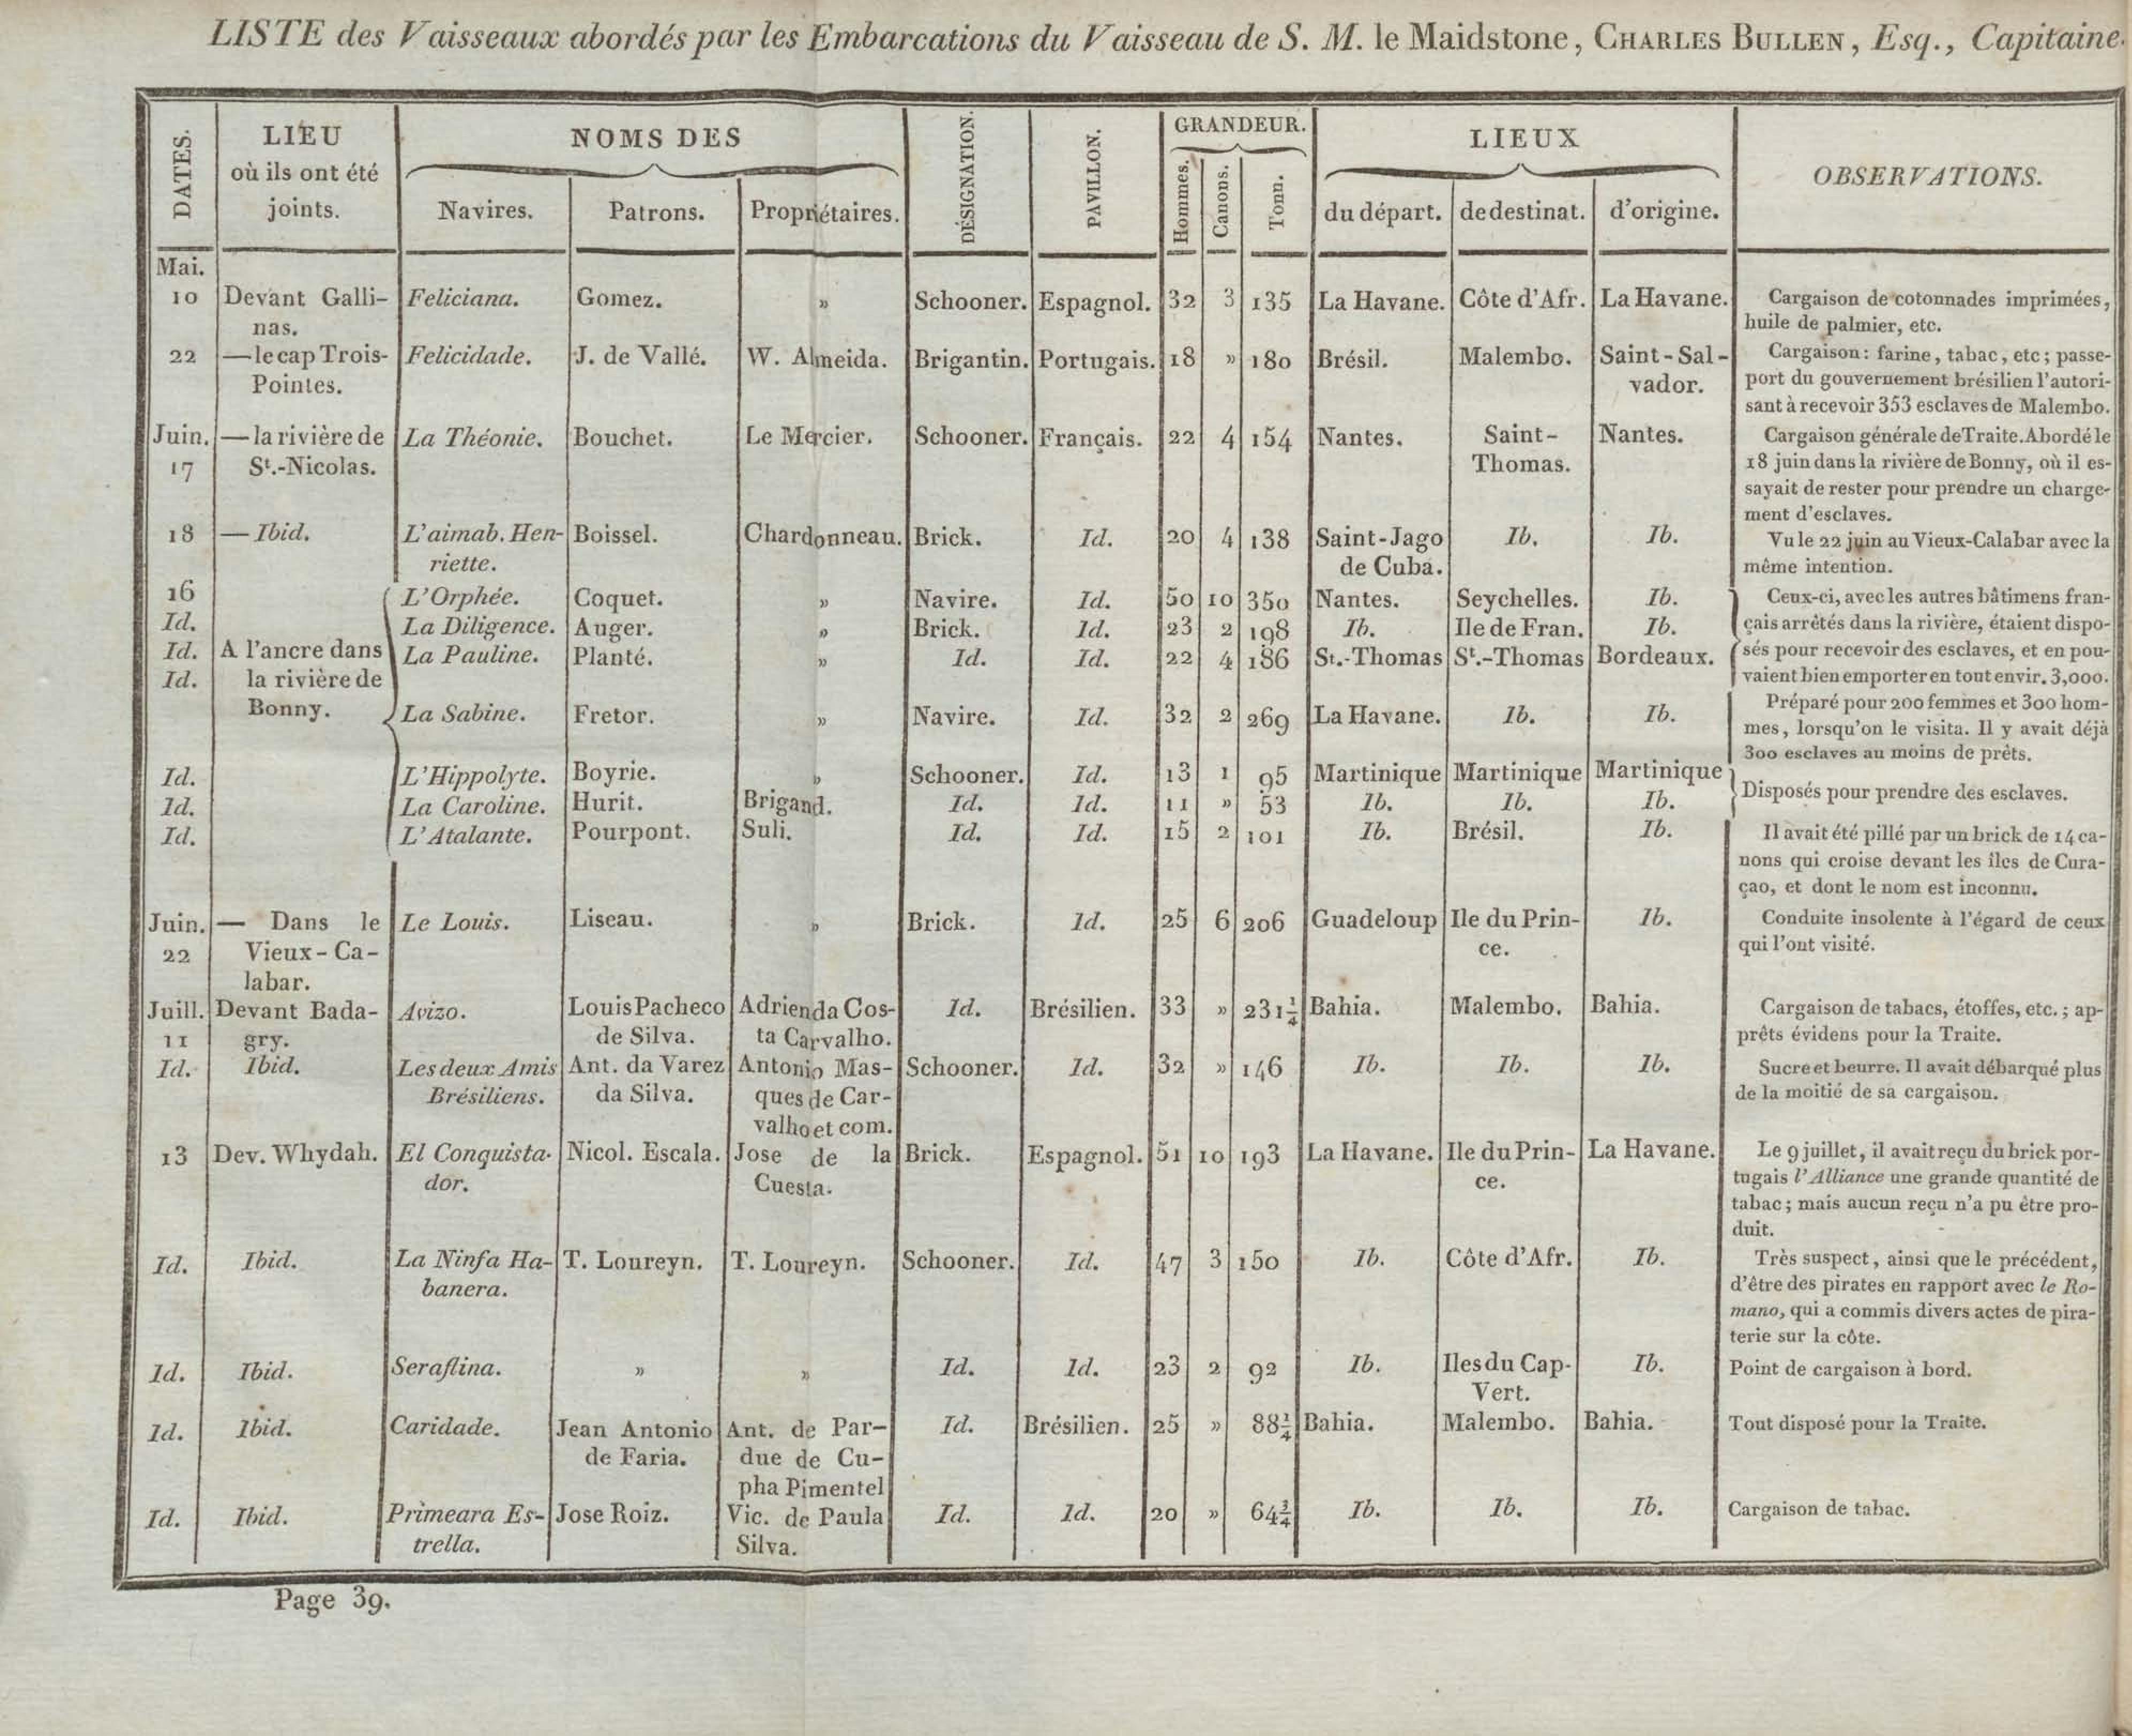 LISTE des Vaisseaux abordés par les Embarcations du Vaisseau de S. M. le Maidstone, CHARLES BULLEN, Esq., Capitaine.
DATES. LIEU NOMS DES DÉSIGNATION. PAVILLON. GRANDEUR. LIEUX OBSERVATIONS.
où ils ont été
joints. Navires. Patrons. Propriétaires. Hommes. Canons. Tonn. du départ. de destinat. d'origine.
Mai.
10 Devant Galli- Feliciana. Gomez. » Schooner. Espagnol. 32 3 135 La Havane. Côte d'Afr. La Havane. Cargaison de cotonnades imprimées,
nas. huile de palmier, etc.
22 — le cap Trois- Felicidade. J. de Vallé. W. Almeida. Brigantin. Portugais. 18 » 180 Brésil. Malembo. Saint-Sal- Cargaison: farine, tabac, etc; passe-
Pointes. vador. port du gouvernement brésilien l'autori-
sant à recevoir 353 esclaves de Malembo.
Juin. — la rivière de La Théonie. Bouchet. Le Mercier. Schooner. Français. 22 4 154 Nantes. Saint- Nantes. Cargaison générale de Traite. Abordé le
17 St.-Nicolas. Thomas. 18 juin dans la rivière de Bonny, où il es-
sayait de rester pour prendre un charge-
ment d'esclaves.
18 — Ibid. L'aimab. Hen- Boissel. Chardonneau. Brick. Id. 20 4 138 Saint-Jago Ib. Ib. Vu le 22 juin au Vieux-Calabar avec la
riette. de Cuba. même intention.
16 L'Orphée. Coquet. » Navire. Id. 50 10 350 Nantes. Seychelles. Ib. Ceux-ci, avec les autres bâtimens fran-
Id. La Diligence. Auger. » Brick. Id. 23 2 198 Ib. Ile de Fran. Ib. çais arrêtés dans la rivière, étaient dispo-
Id. A l'ancre dans La Pauline. Planté. » Id. Id. 22 4 186 St.-Thomas St.-Thomas Bordeaux. sés pour recevoir des esclaves, et en pou-
Id. la rivière de vaient bien emporter en tout envir. 3,000.
Bonny. La Sabine. Fretor. » Navire. Id. 32 2 269 La Havane. Ib. Ib. Préparé pour 200 femmes et 300 hom-
mes, lorsqu'on le visita. Il y avait déjà
300 esclaves au moins de prêts.
Id. L'Hippolyte. Boyrie. » Schooner. Id. 13 1 95 Martinique Martinique Martinique Disposés pour prendre des esclaves.
Id. La Caroline. Hurit. Brigand. Id. Id. 11 » 53 Ib. Ib. Ib.
Id. L'Atalante. Pourpont. Suli. Id. Id. 15 2 101 Ib. Brésil. Ib. Il avait été pillé par un brick de 14 ca-
nons qui croise devant les îles de Cura-
çao, et dont le nom est inconnu.
Juin. — Dans le Le Louis. Liseau. » Brick. Id. 25 6 206 Guadeloup Ile du Prin- Ib. Conduite insolente à l'égard de ceux
22 Vieux-Ca- ce. qui l'ont visité.
labar.
Juill. Devant Bada- Avizo. Louis Pacheco Adrien da Cos- Id. Brésilien. 33 » 231 1/4 Bahia. Malembo. Bahia. Cargaison de tabacs, étoffes, etc.; ap-
11 gry. de Silva. ta Carvalho. prêts évidens pour la Traite.
Id. Ibid. Les deux Amis Ant. da Varez Antonio Mas- Schooner. Id. 32 » 146 Ib. Ib. Ib. Sucre et beurre. Il avait débarqué plus
Brésiliens. da Silva. ques de Car- de la moitié de sa cargaison.
valho et com.
13 Dev. Whydah. El Conquista- Nicol. Escala. Jose de la Brick. Espagnol. 51 10 193 La Havane. Ile du Prin- La Havane. Le 9 juillet, il avait reçu du brick por-
dor. Cuesta. ce. tugais l'Alliance une grande quantité de
tabac; mais aucun reçu n'a pu être pro-
duit.
Id. Ibid. La Ninfa Ha- T. Loureyn. T. Loureyn. Schooner. Id. 47 3 150 Ib. Côte d'Afr. Ib. Très suspect, ainsi que le précédent,
banera. d'être des pirates en rapport avec le Ro-
mano, qui a commis divers actes de pira-
terie sur la côte.
Id. Ibid. Seraflina. » » Id. Id. 23 2 92 Ib. Iles du Cap- Ib. Point de cargaison à bord.
Vert.
Id. Ibid. Caridade. Jean Antonio Ant. de Par- Id. Brésilien. 25 » 88 1/4 Bahia. Malembo. Bahia. Tout disposé pour la Traite.
de Faria. due de Cu-
pha Pimentel
Id. Ibid. Primeara Es- Jose Roiz. Vic. de Paula Id. Id. 20 » 64 3/4 Ib. Ib. Ib. Cargaison de tabac.
trella. Silva.
Page 39.